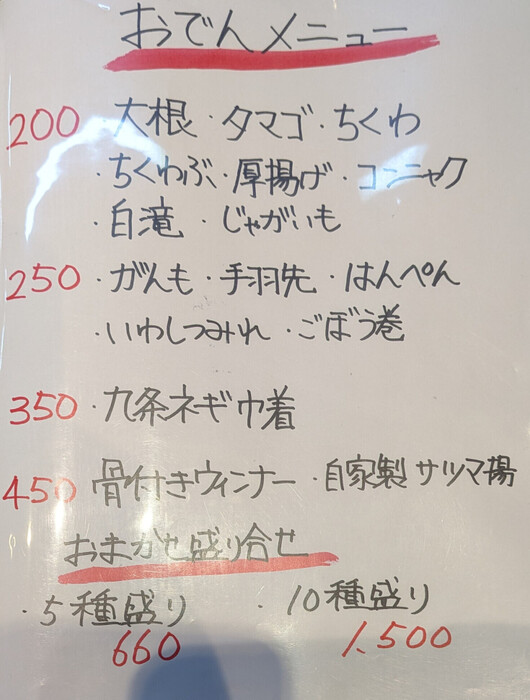 おでんメニュー
200 大根・タマゴ・ちくわ
・ちくわぶ・厚揚げ・コンニャク
・白滝・じゃがいも
250・がんも・手羽先・はんぺん
・いわしつみれ・ごぼう巻
350・九条ネギ巾着
450 骨付きウィンナー・自家製サツマ揚
おまかせ盛り合せ
・5種盛り ・10種盛り
660 1.500